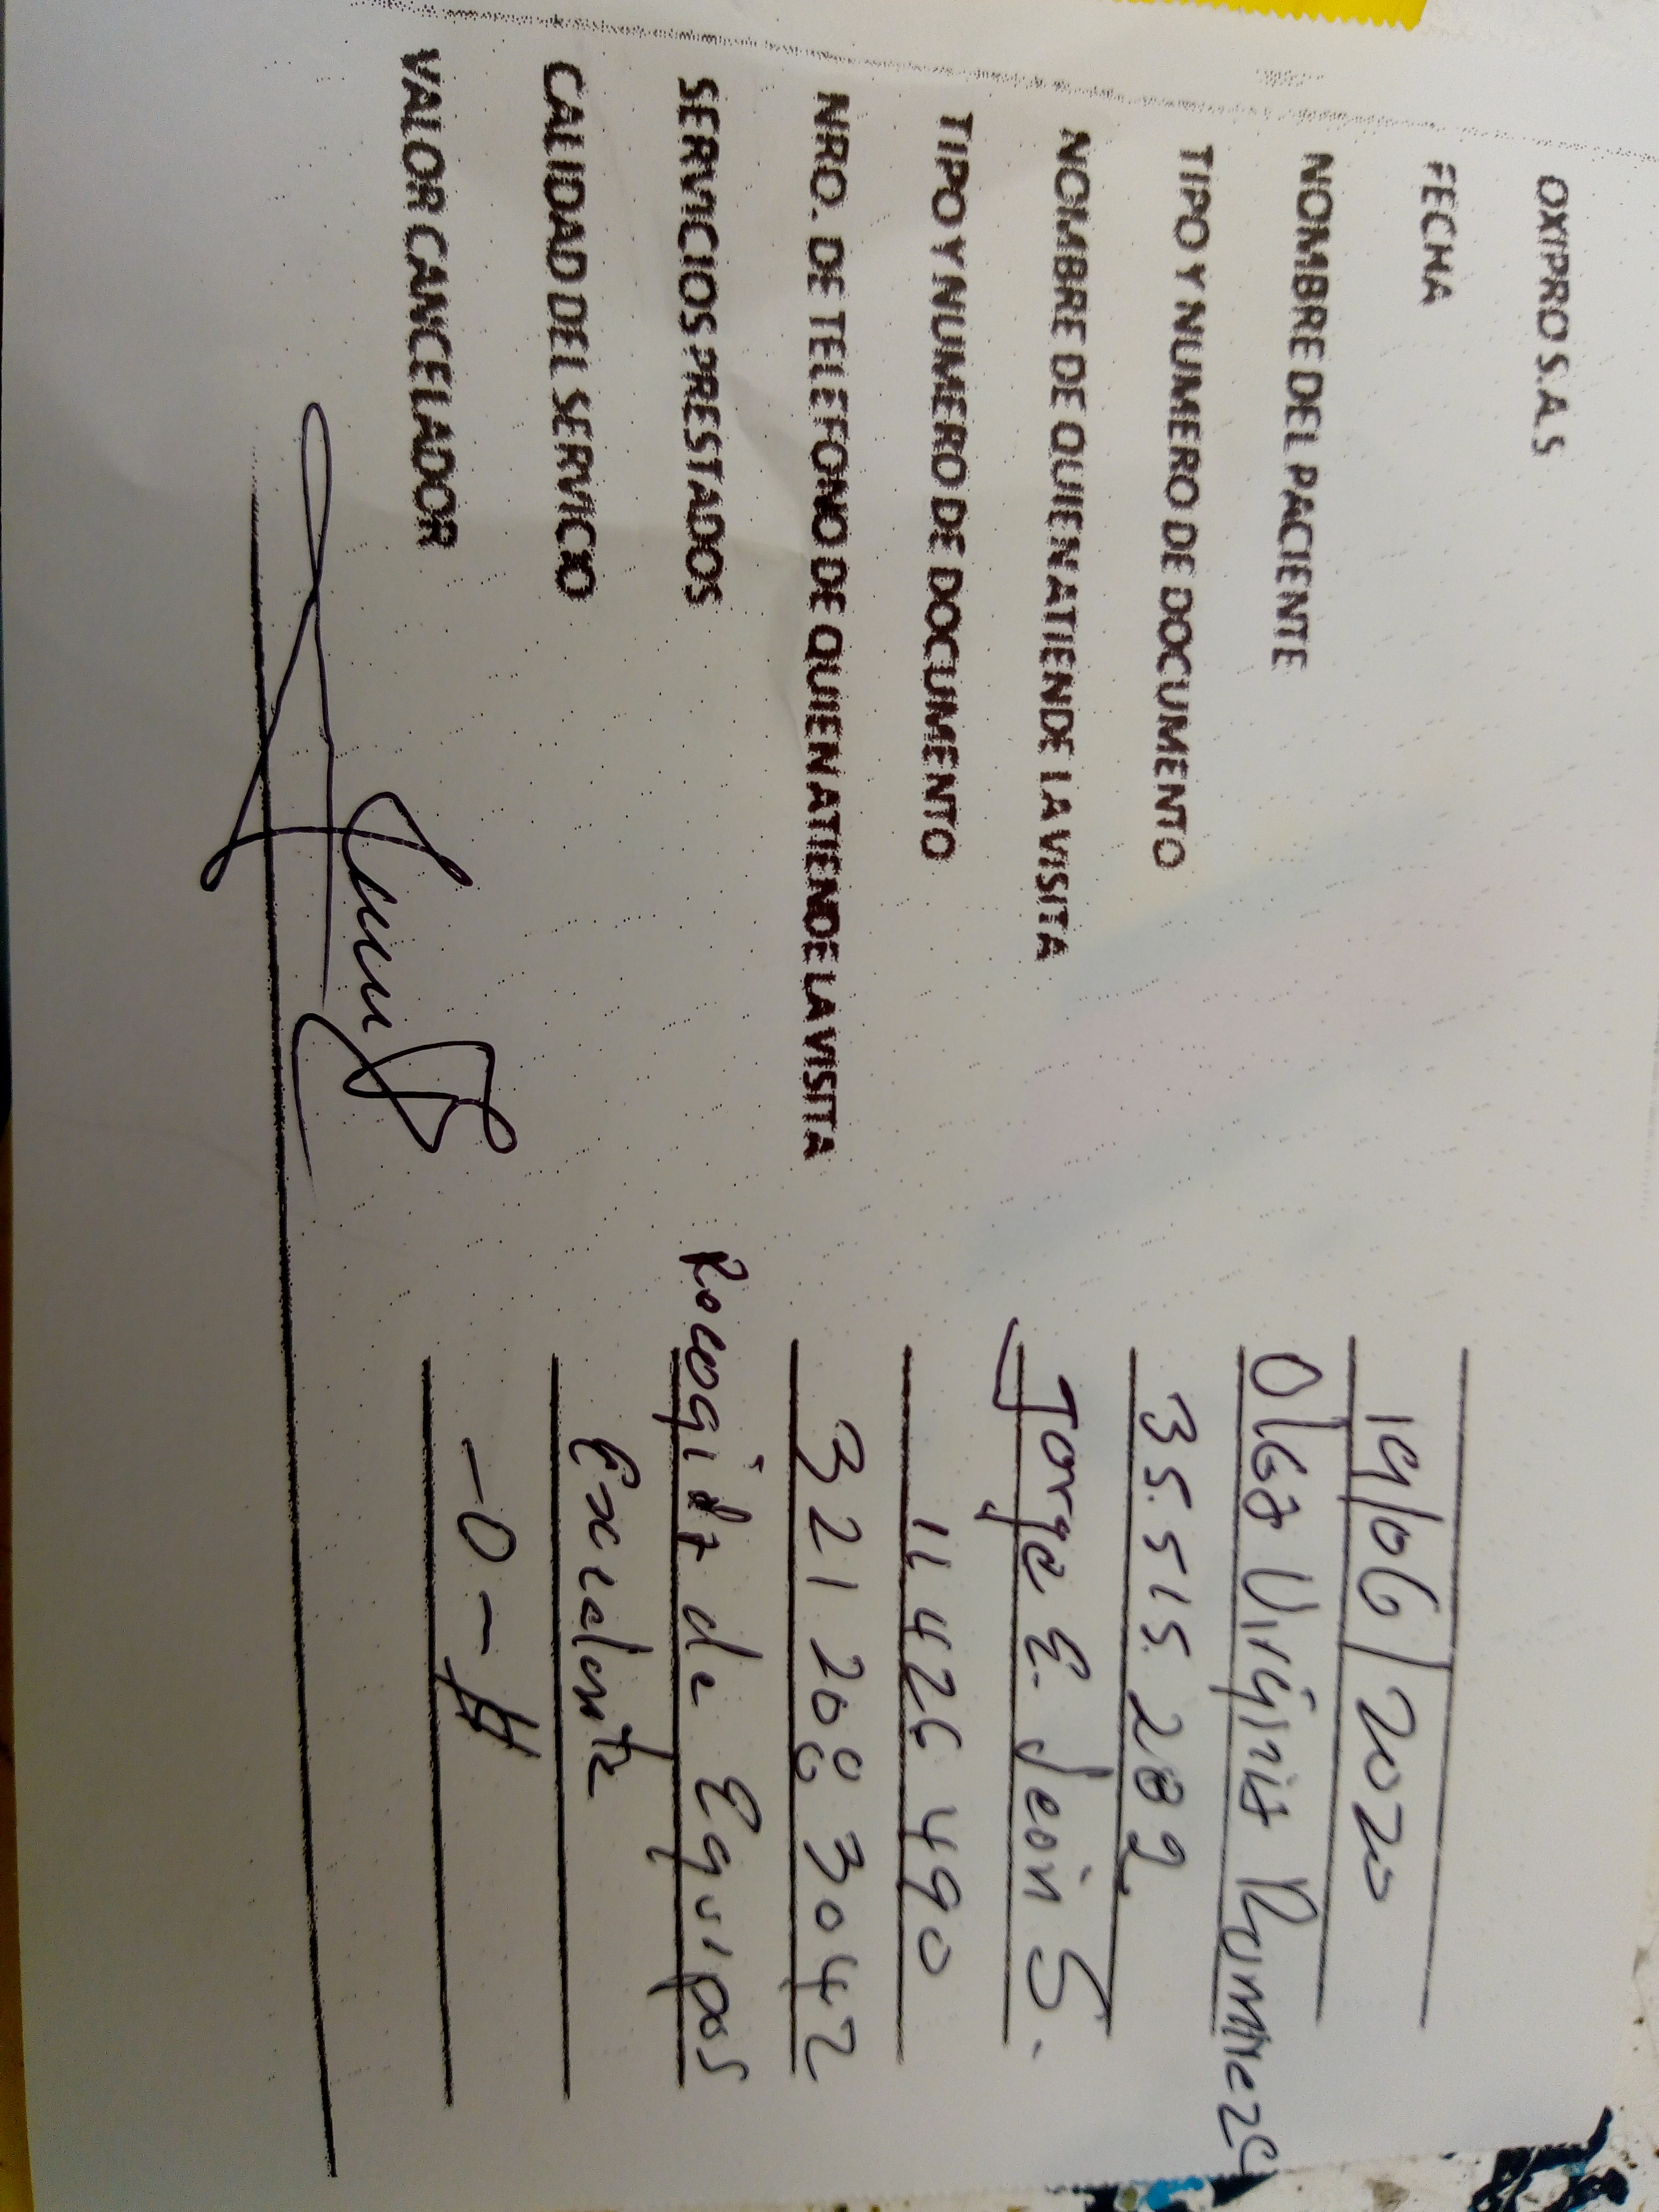 OXIPRO S.A.S
FECHA 19/06/2020
NOMBRE DEL PACIENTE Olga Virginia
TIPO Y NUMERO DE DOCUMENTO 35.515.282
NOMBRE DE QUIEN ATIENDE LA VISITA Jorge E. León S.
TIPO Y NUMERO DE DOCUMENTO 11.426.490
NRO. DE TELEFONO DE QUIEN ATIENDE LA VISITA 321 208 3042
SERVICIOS PRESTADOS Recogida de Equipos
CALIDAD DEL SERVICIO Excelente
VALOR CANCELADOR -0-